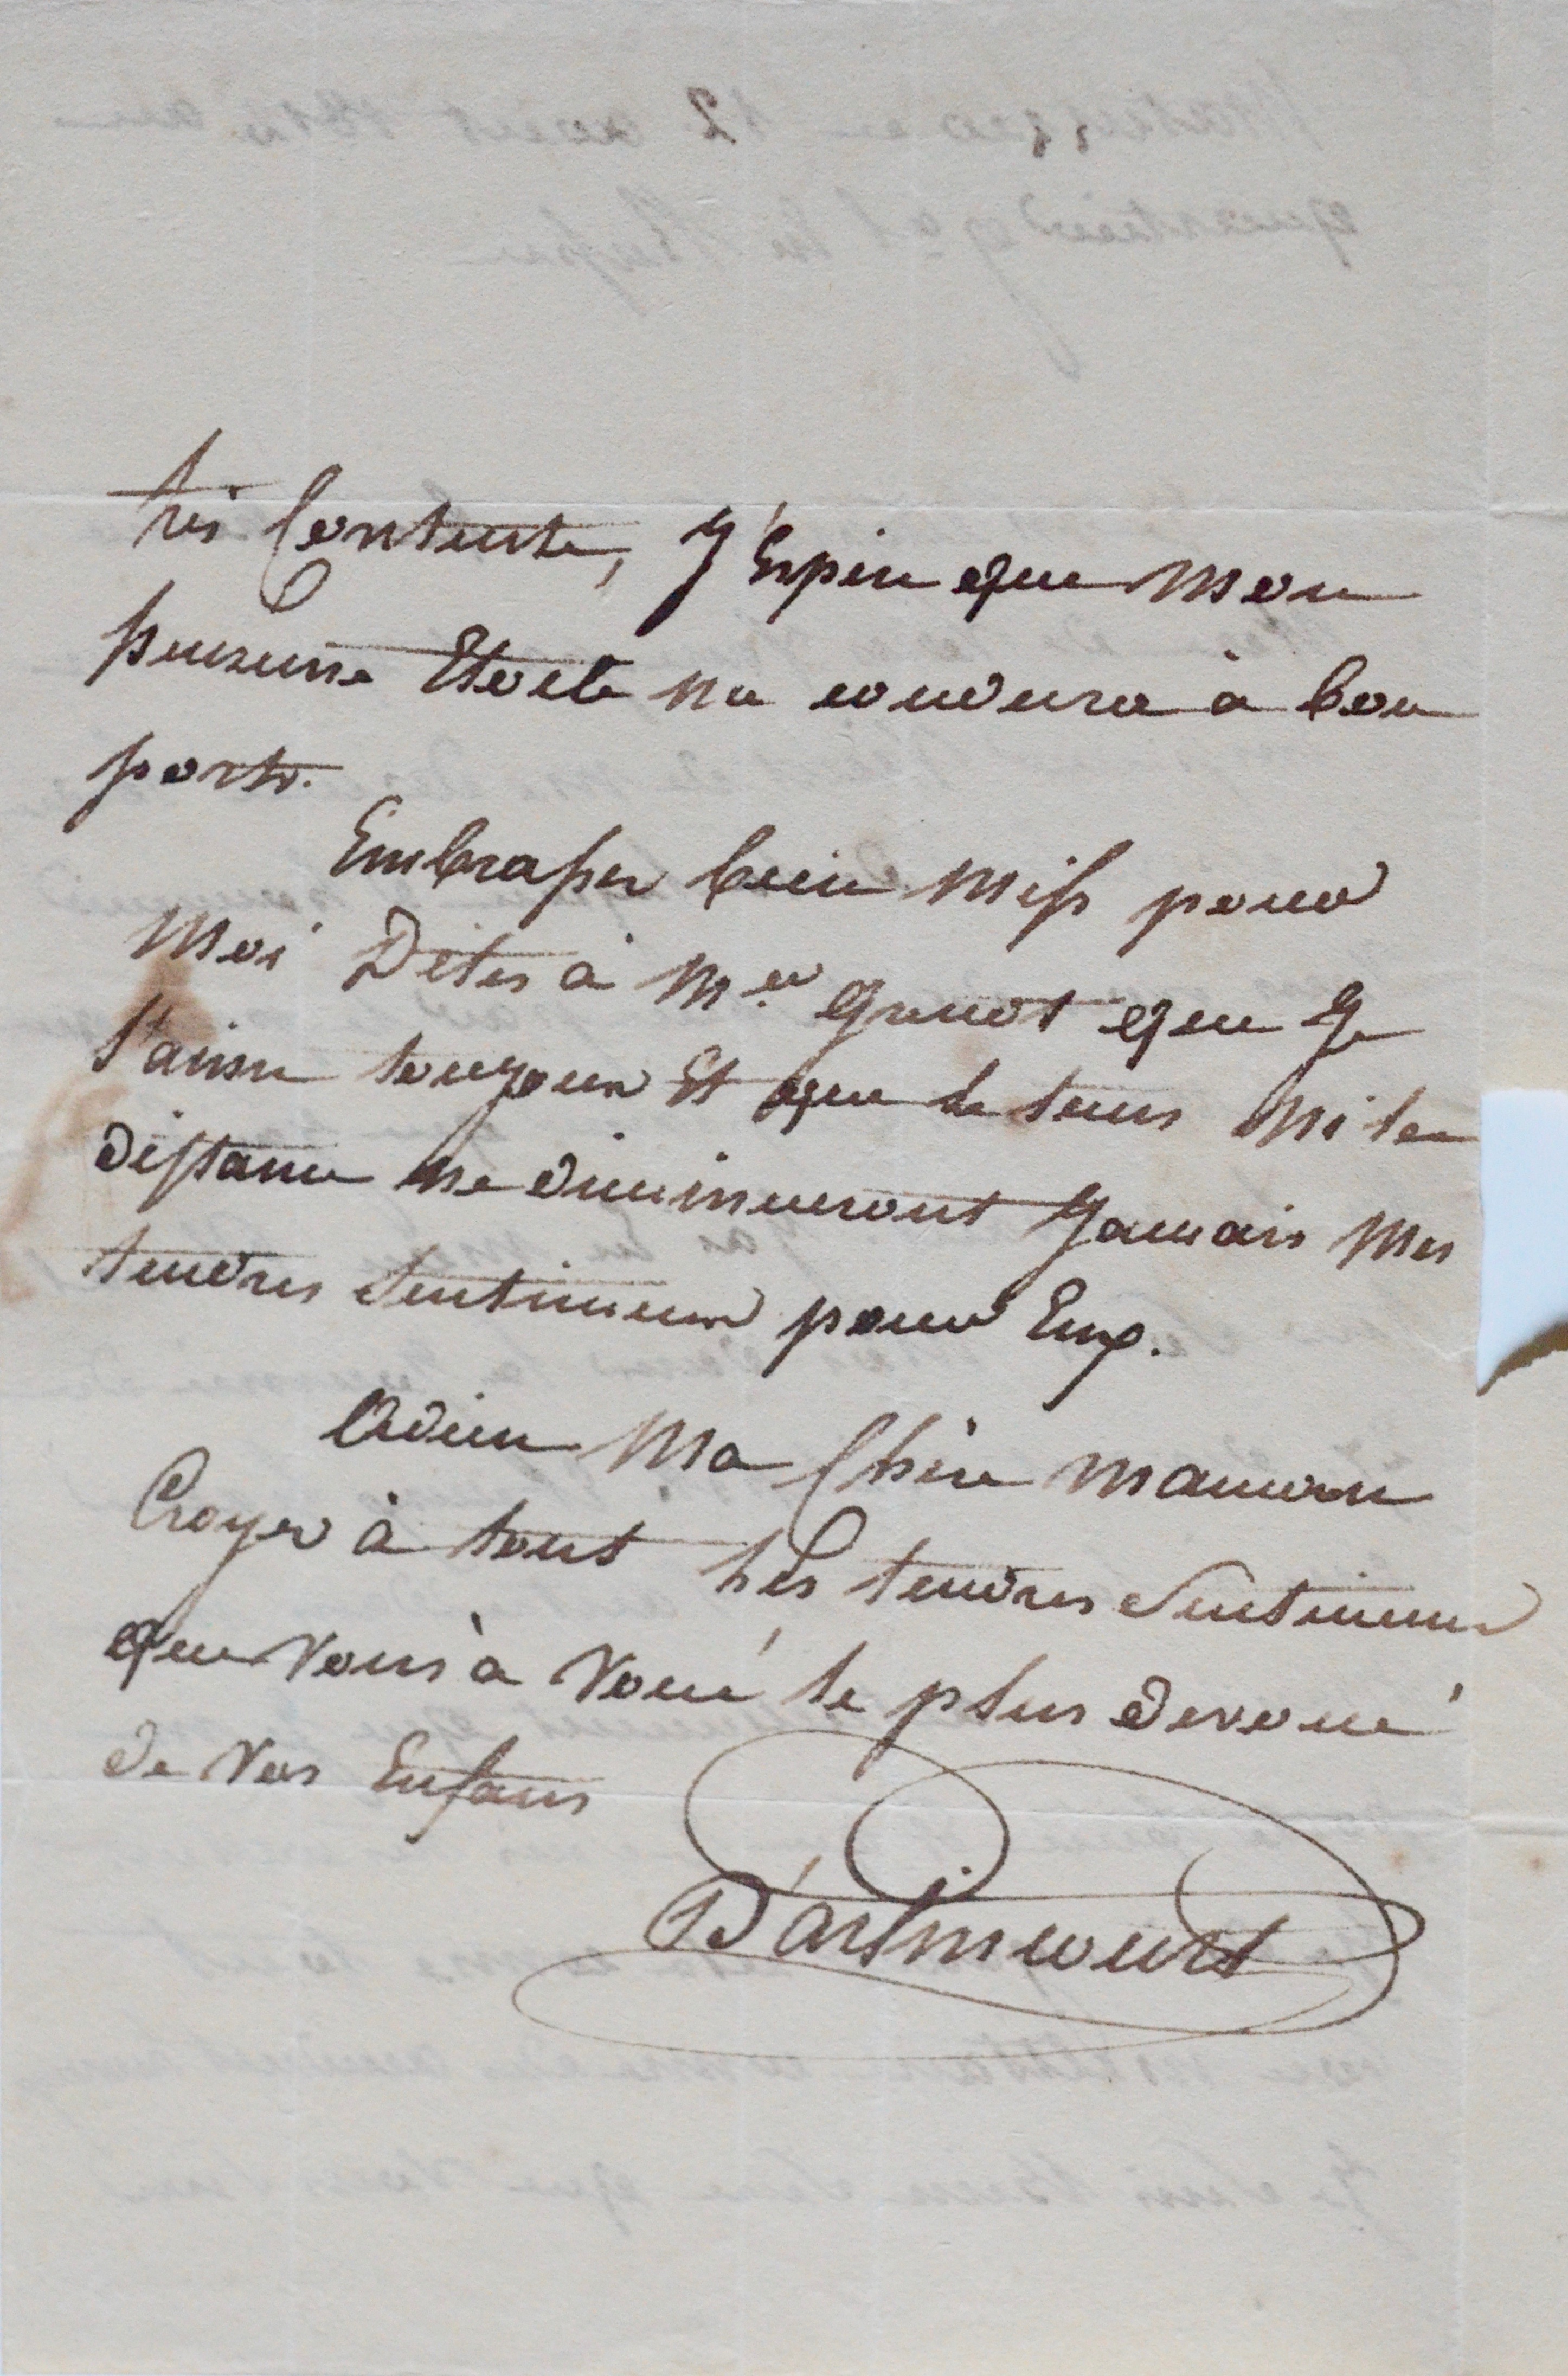 très Contente, J'Espere que Mon
heureuse Etoile me conduira à bon
port.
Embrasser bien Miss pour
Moi Dites à Mr Gruiot que Je
l'aime toujour Et que le tems Ni la
distance ne diminueront Jamais Mes
tendres Sentimens pour Eux.
Adieu Ma Chère maman
Croyer à tout les tendres Sentimens
que Vous à Voué le plus devoué
de Vos Enfans
D'arlincourt